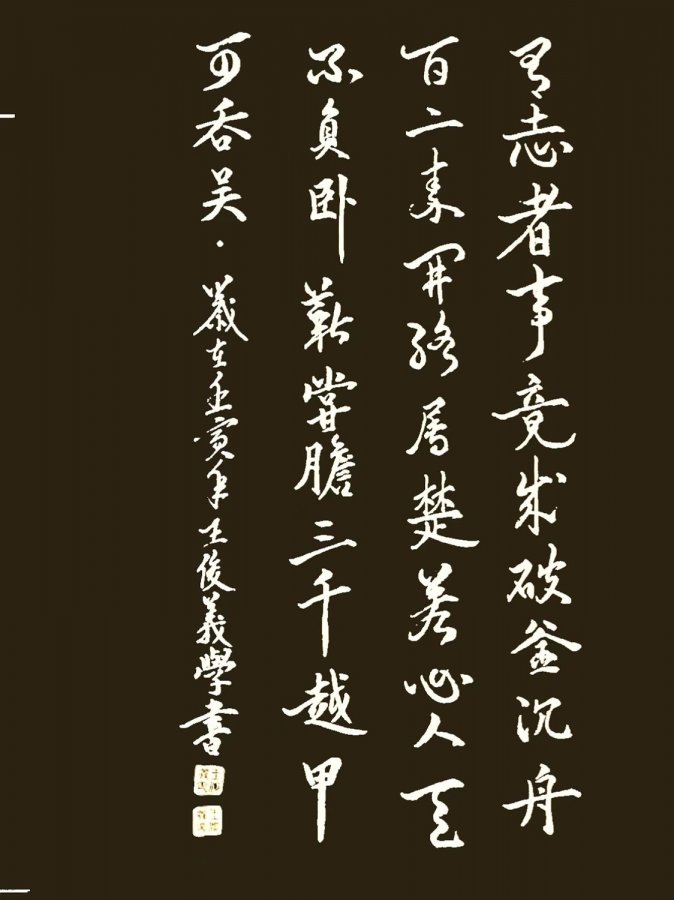 有志者事竟成破釜沉舟
百二秦關終属楚苦心人天
不負卧薪嘗膽三千越甲
可吞吴·歲在壬寅年王俊義學書